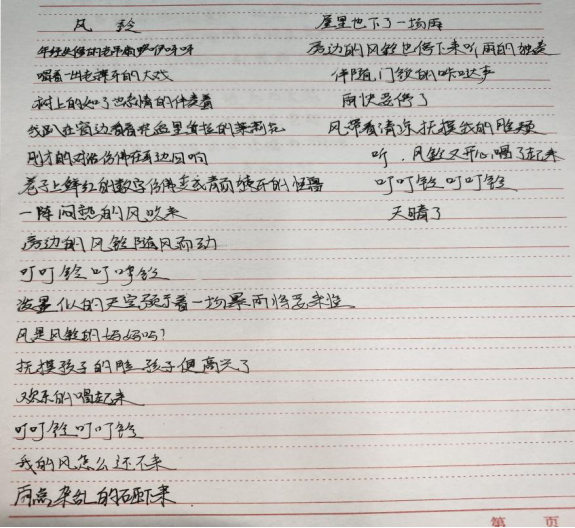 风铃
年轻女伶的老年腔咿咿呀呀
唱着一出老掉牙的大戏
树上的知了也敬情的伴奏着
我趴在窗边看着花盆里青拉的茉莉花
刚才的对话仿佛在耳边回响
卷子上鲜红的数字仿佛是张着獠牙的怪兽
一阵闷热的风吹来
旁边的风铃随风而动
叮叮铃叮咛铃
泼墨似的天空预示着一场暴雨将要来临
风是风铃的妈妈吗?
抚摸孩子的脸 孩子便高兴了
欢乐的唱起来
叮叮铃叮叮铃
我的风怎么还不来
雨点杂乱的砸下来
屋里也下了一场雨
旁边的风铃也停下来听雨的独奏
伴随门锁的咔哒声
雨快要停了
风带着清凉抚摸我的脸颊
听,风铃又开心唱了起来
叮叮铃叮叮铃
天晴了
第 页